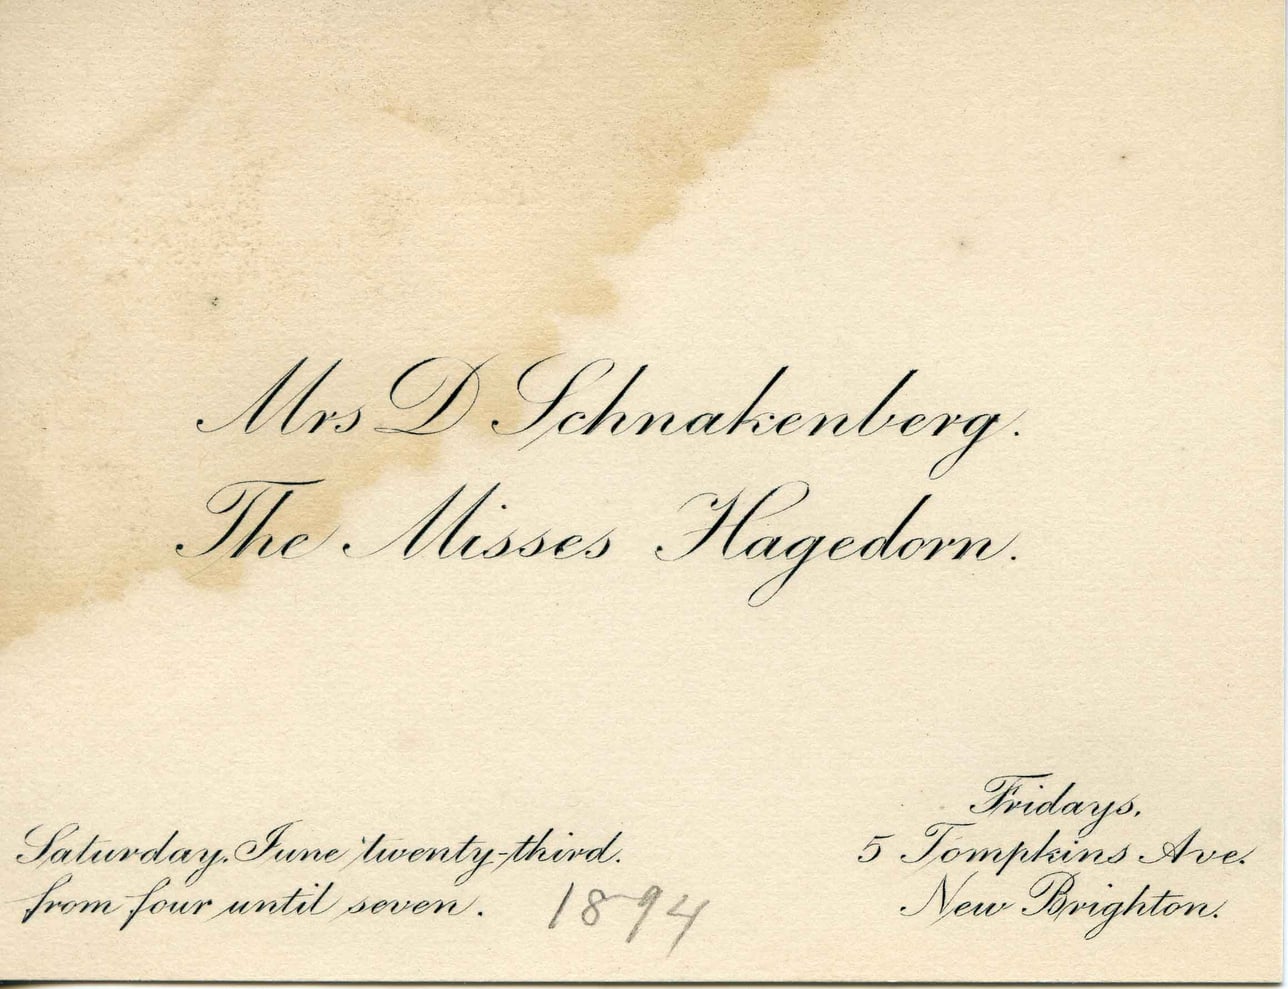 Mrs D Schnakenberg.
The Misses Hagedorn.
Saturday, June twenty-third.
from four until seven.
1894
Fridays.
5 Tompkins Ave.
New Brighton.